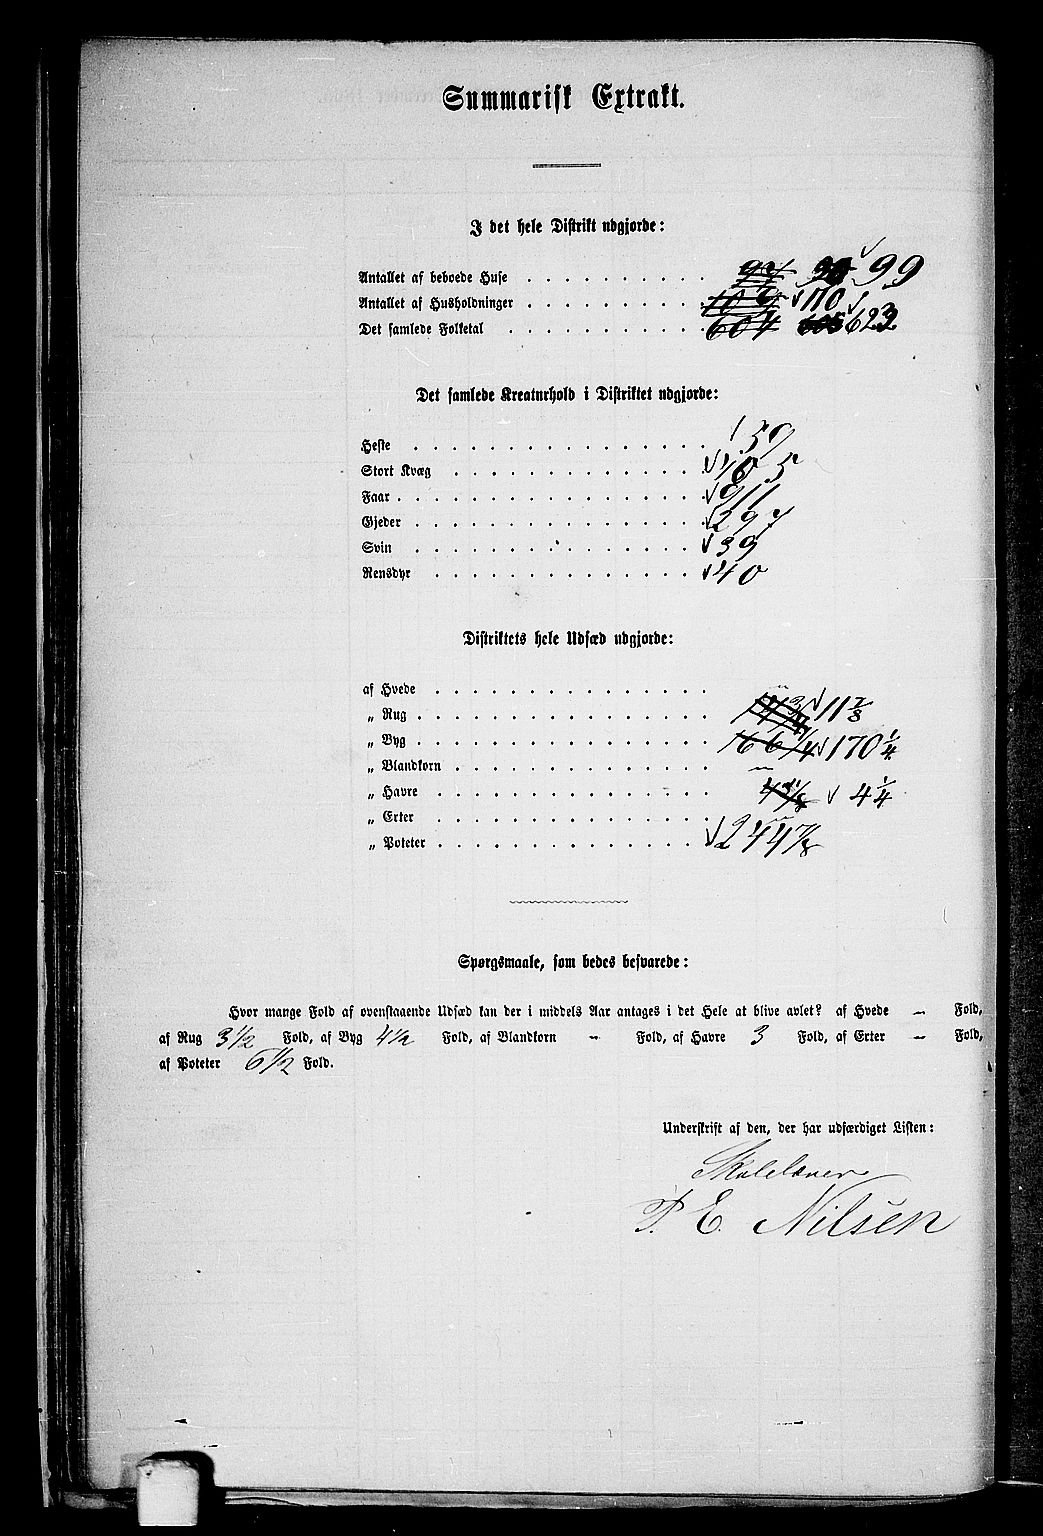 Summarisk Extrakt.
I det hele Distrikt udgjorde:
Antallet af beboede Huse 99
Antallet af Husholdninger 110
Det samlede Folketal 604 623
Det samlede Kreaturhold i Distriktet udgjorde:
Heste 59
Stort Kvæg
Faar 911
Gjeder 297
Svin 39
Rensdyr 40
Distriktets hele Udsæd udgjorde:
af Hvede "
„ Rug 11 7/8
„ Byg 166 1/4 170 1/4
„ Blandkorn "
„ Havre 4 1/4
„ Erter "
„ Poteter 244 7/8
Spørgsmaale, som bedes besvarede:
Hvor mange Fold af ovenstaaende Udsæd kan der i middels Aar antages i det Hele at blive avlet? af Hvede " Fold,
af Rug 3 1/2 Fold, af Byg 4 1/2 Fold, af Blandkorn " Fold, af Havre 3 Fold, af Erter " Fold,
af Poteter 6 1/2 Fold.
Underskrift af den, der har udfærdiget Listen:
Skolelærer
P. E. Nilsen